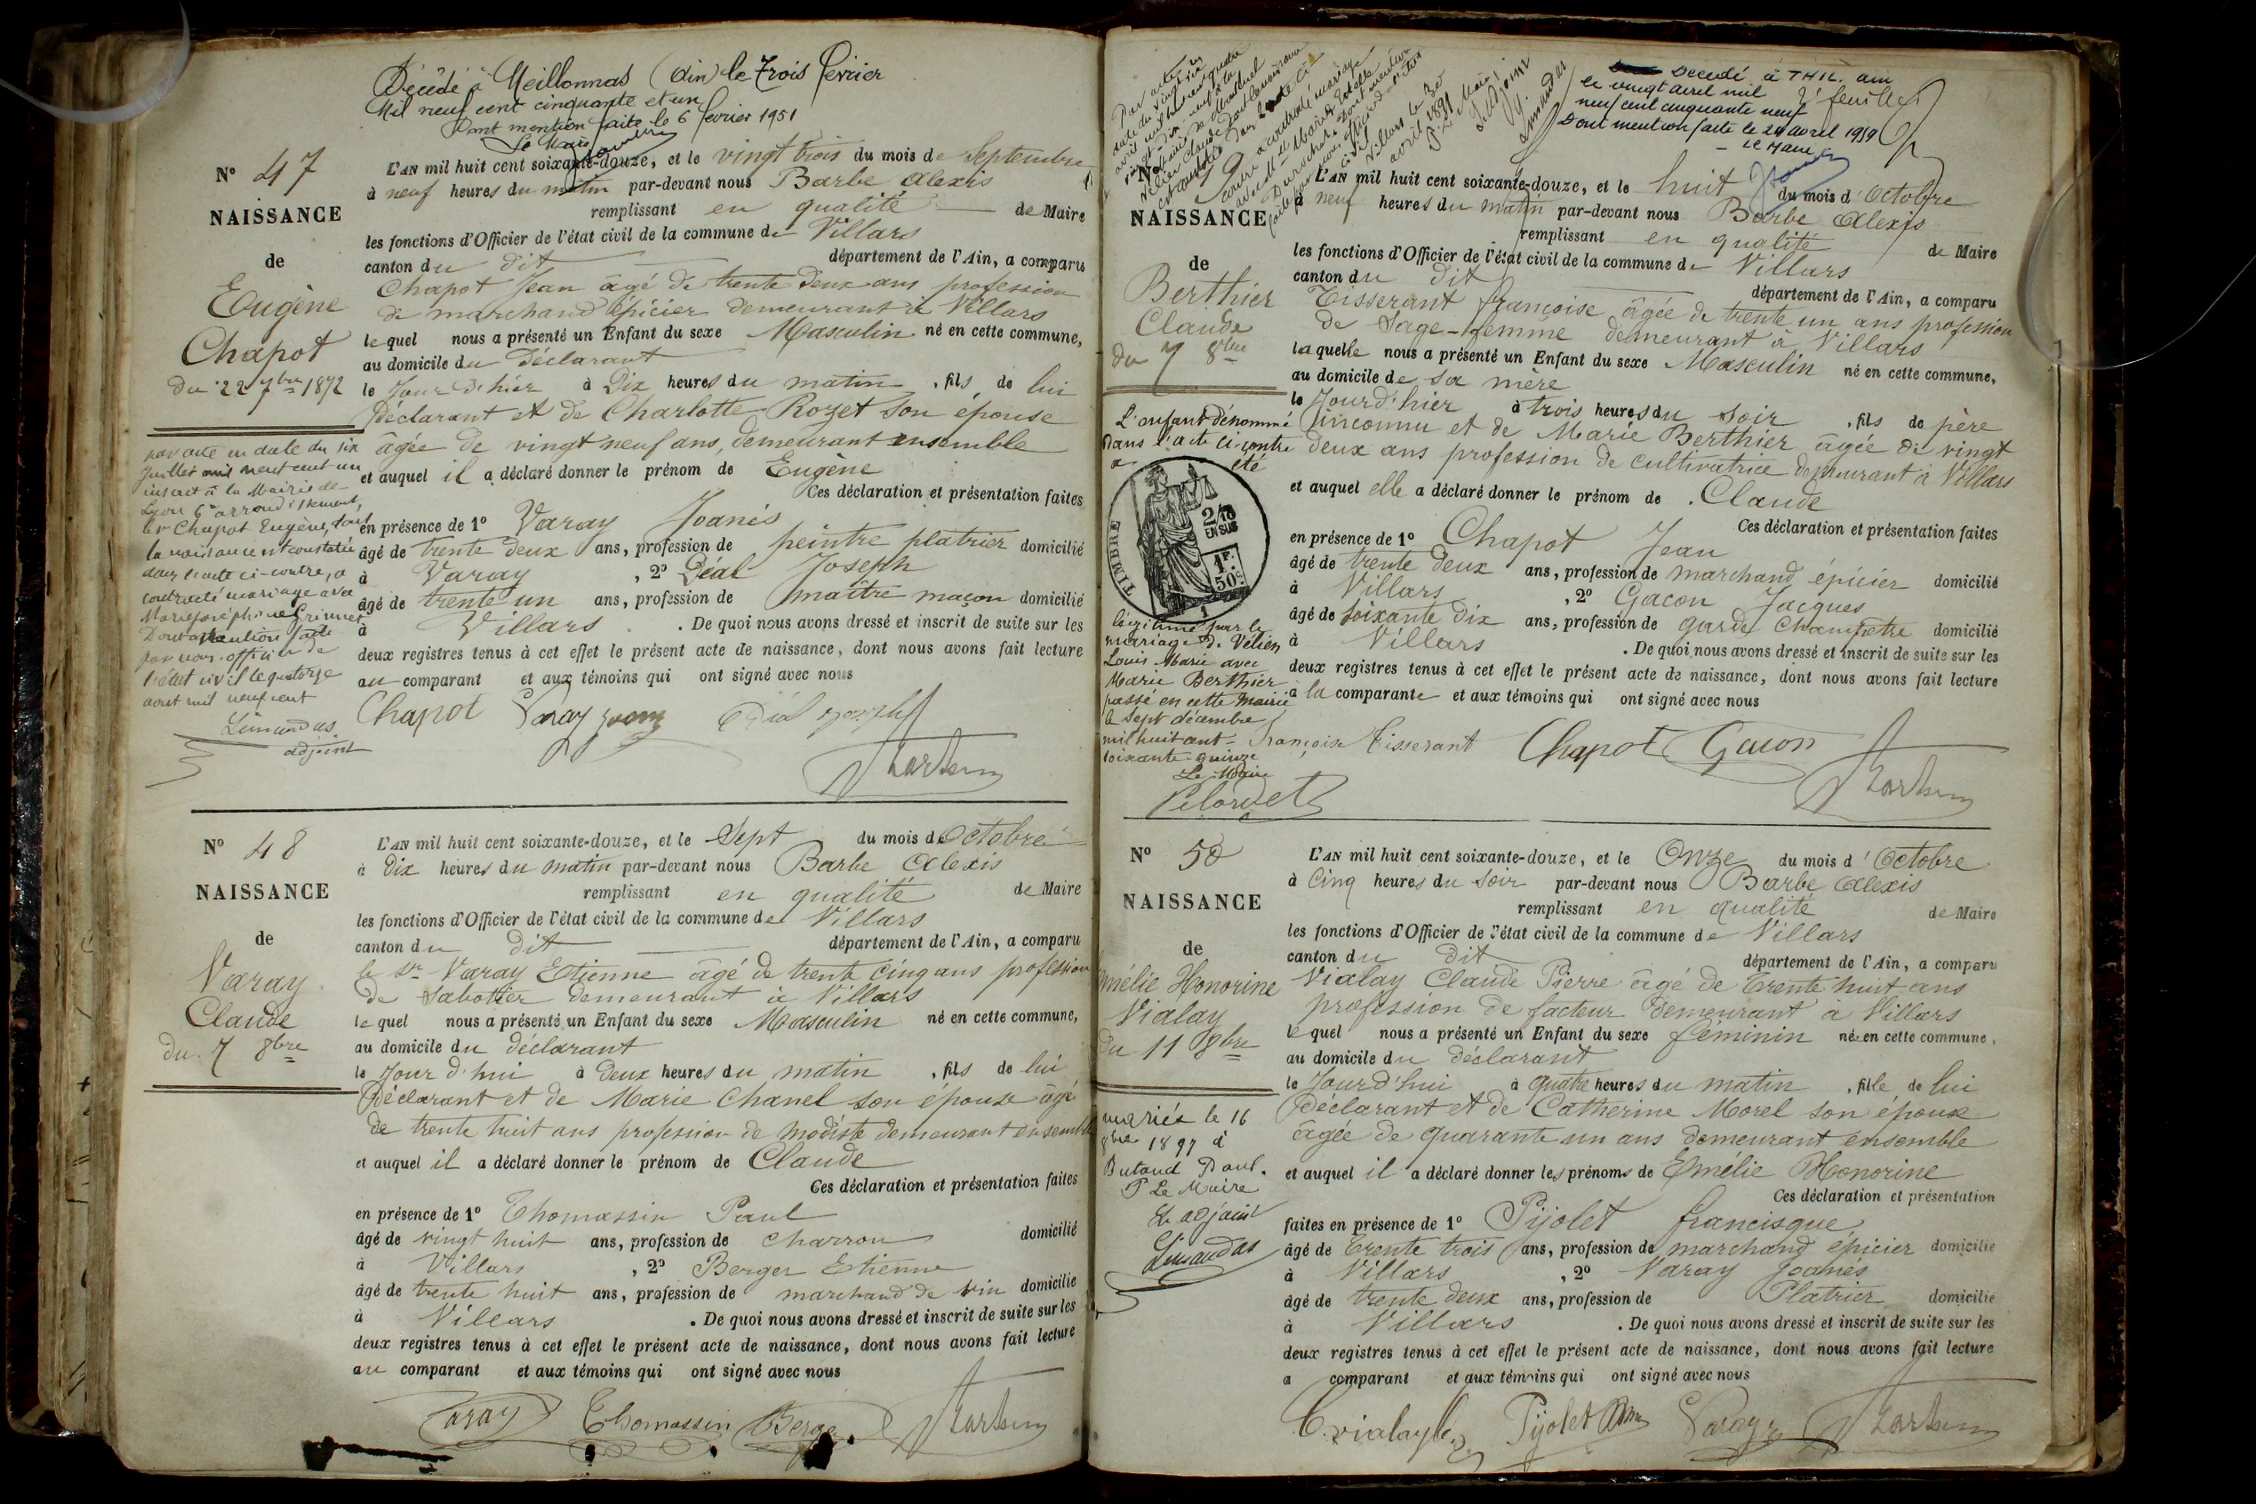 Décédé à Meillonnas (Ain) le Trois février
Mil neuf cent cinquante et un
Dont mention faite le 6 février 1951
Le Maire
N° 47
NAISSANCE
de
Eugène
Chapot
du 22 7bre 1872
par acte en date du six
juillet mil neuf cent un
inscrit à la Mairie de
Lyon 6e arrondissement,
le sr Chapot Eugène, dont
la naissance est constatée
dans l'acte ci-contre, a
contracté mariage avec
Marie Joséphine
Dont mention faite
par nous officier de
l'état civil le quatorze
aout mil neuf cent
Limandas
adjoint
L'AN mil huit cent soixante-douze, et le vingt trois du mois de Septembre
à neuf heures du matin par-devant nous Barbe Alexis
remplissant en qualité de Maire
les fonctions d'Officier de l'état civil de la commune de Villars
canton du dit département de l'Ain, a comparu
Chapot Jean âgé de trente deux ans profession
de marchand épicier demeurant à Villars
lequel nous a présenté un Enfant du sexe Masculin né en cette commune,
au domicile du Déclarant
le Jour d'hier à Dix heures du matin, fils de lui
Déclarant et de Charlotte Rozet son épouse
âgée de vingt neuf ans, demeurant ensemble
et auquel il a déclaré donner le prénom de Eugène
Ces déclaration et présentation faites
en présence de 1° Varay Joanès
âgé de trente deux ans, profession de peintre platrier domicilié
à Varay, 2° Déal Joseph
âgé de trente un ans, profession de maître maçon domicilié
à Villars. De quoi nous avons dressé et inscrit de suite sur les
deux registres tenus à cet effet le présent acte de naissance, dont nous avons fait lecture
au comparant et aux témoins qui ont signé avec nous
Chapot Varay Déal Joseph
N° 48
NAISSANCE
de
Varay
Claude
du 7 8bre
L'AN mil huit cent soixante-douze, et le Sept du mois d'Octobre
à Dix heures du matin par-devant nous Barbe Alexis
remplissant en qualité de Maire
les fonctions d'Officier de l'état civil de la commune de Villars
canton du dit département de l'Ain, a comparu
le sr Varay Etienne âgé de trente cinq ans profession
de Sabotier demeurant à Villars
lequel nous a présenté un Enfant du sexe Masculin né en cette commune,
au domicile du déclarant
le Jour d'hui à Deux heures du matin, fils de lui
Déclarant et de Marie Chanel son épouse âgé
de trente huit ans profession de modiste demeurant ensemble
et auquel il a déclaré donner le prénom de Claude
Ces déclaration et présentation faites
en présence de 1° Thomassin Paul
âgé de vingt huit ans, profession de charron domicilié
à Villars, 2° Berger Etienne
âgé de trente huit ans, profession de marchand de vin domicilié
à Villars. De quoi nous avons dressé et inscrit de suite sur les
deux registres tenus à cet effet le présent acte de naissance, dont nous avons fait lecture
au comparant et aux témoins qui ont signé avec nous
Varay Thomassin Berger
Décédé à THIL. ain
le vingt avril mil
neuf cent cinquante neuf
Dont mention faite le 24 avril 1959
Le Maire
2e feuillet
Villars le 30
avril 1891
P. Le Maire
L'adjoint
Limandas
N° 49
NAISSANCE
de
Berthier
Claude
du 7 8bre
L'enfant dénommé
dans l'acte ci-contre
a été
TIMBRE
2/10
EN SUS
1F.
50c.
1
légitimé par le
mariage d. Vélien
Louis Marie avec
Marie Berthier
passé en cette mairie
le sept décembre
mil huit cent
soixante-quinze
Le Maire
Pelardet
L'AN mil huit cent soixante-douze, et le huit du mois d'Octobre
à neuf heures du matin par-devant nous Barbe Alexis
remplissant en qualité de Maire
les fonctions d'Officier de l'état civil de la commune de Villars
canton du dit département de l'Ain, a comparu
Tisserant Françoise âgée de trente un ans profession
de Sage-femme demeurant à Villars
laquelle nous a présenté un Enfant du sexe Masculin né en cette commune,
au domicile de sa mère
le Jour d'hier à trois heures du soir, fils de père
inconnu et de Marie Berthier âgée de vingt
deux ans profession de cultivatrice demeurant à Villars
et auquel elle a déclaré donner le prénom de Claude
Ces déclaration et présentation faites
en présence de 1° Chapot Jean
âgé de trente deux ans, profession de marchand épicier domicilié
à Villars, 2° Gacon Jacques
âgé de soixante dix ans, profession de garde champêtre domicilié
à Villars. De quoi nous avons dressé et inscrit de suite sur les
deux registres tenus à cet effet le présent acte de naissance, dont nous avons fait lecture
à la comparante et aux témoins qui ont signé avec nous
Françoise Tisserant Chapot Gacon
N° 50
NAISSANCE
de
Emélie Honorine
Vialay
du 11 8bre
mariée le 16
8bre 1897 à
Butaud Paul.
P Le Maire
L'adjoint
Limandas
L'AN mil huit cent soixante-douze, et le Onze du mois d'Octobre
à Cinq heures du soir par-devant nous Barbe Alexis
remplissant en qualité de Maire
les fonctions d'Officier de l'état civil de la commune de Villars
canton du dit département de l'Ain, a comparu
Vialay Claude Pierre âgé de trente huit ans
profession de facteur demeurant à Villars
lequel nous a présenté un Enfant du sexe féminin née en cette commune,
au domicile du déclarant
le Jour d'hui à quatre heures du matin, fille de lui
Déclarant et de Catherine Morel son épouse
âgée de quarante un ans demeurant ensemble
et auquel il a déclaré donner les prénoms de Emélie Honorine
Ces déclaration et présentation
faites en présence de 1° Pijolet francisque
âgé de trente trois ans, profession de marchand épicier domicilié
à Villars, 2° Varay Joanès
âgé de trente deux ans, profession de Platrier domicilié
à Villars. De quoi nous avons dressé et inscrit de suite sur les
deux registres tenus à cet effet le présent acte de naissance, dont nous avons fait lecture
a comparant et aux témoins qui ont signé avec nous
C. vialay Pijolet Varay